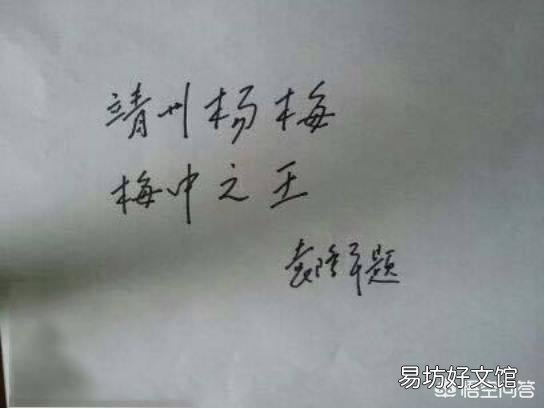 靖州杨梅
梅中之王
袁隆平题
易坊好文馆
悟空问答